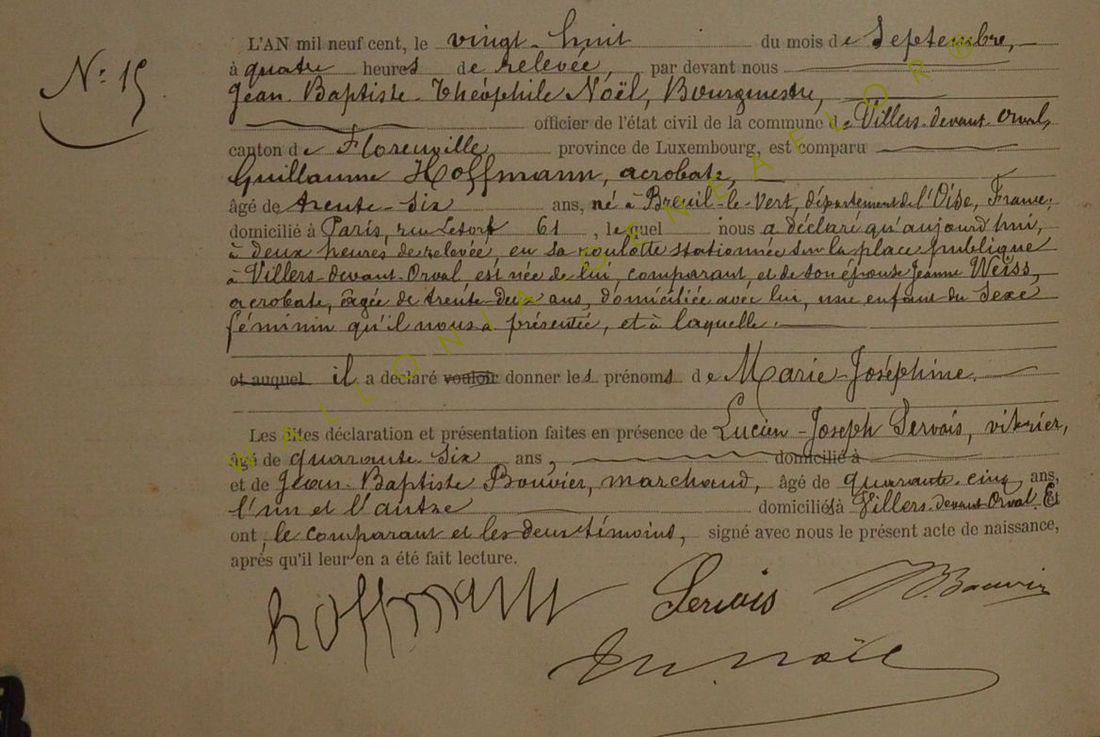 N° 15
L'AN mil neuf cent, le vingt-huit du mois de Septembre,
à quatre heures de relevée, par devant nous
Jean-Baptiste-Théophile Noël, Bourgmestre,
officier de l'état civil de la commune de Villers-devant-Orval,
canton de Florenville, province de Luxembourg, est comparu
Guillaume Hoffmann, acrobate,
âgé de trente-six ans, né à Breuil-le-Vert, département de l'Oise, France,
domicilié à Paris, rue 61, lequel nous a déclaré qu'aujourd'hui,
à deux heures de relevée, en sa roulotte stationnée sur la place publique
à Villers-devant-Orval, est née de lui, comparant, et de son épouse Jeanne Weiss,
acrobate, âgée de trente-deux ans, domiciliée avec lui, une enfant du Sexe
féminin qu'il nous a présentée, et à laquelle
et auquel il a déclaré vouloir donner les prénoms de Marie-Joséphine.
Les dites déclaration et présentation faites en présence de Lucien-Joseph Servais, vitrier,
âgé de quarante-six ans, domicilié à
et de Jean-Baptiste Bouvier, marchand, âgé de quarante-cinq ans,
l'un et l'autre domiciliés à Villers-devant-Orval. Et
ont, le comparant et les deux témoins, signé avec nous le présent acte de naissance,
après qu'il leur en a été fait lecture.
hoffmann Servais Bouvier
Th. Noël